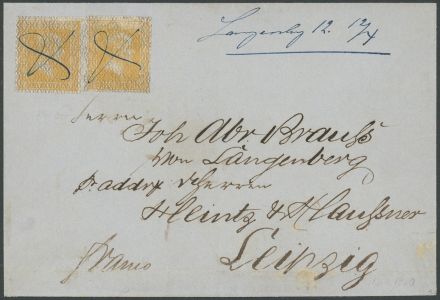 Langenberg 12. 12/4
Herrn
Joh Abr. Brauss
von Langenberg
pr addr Herren
Heintz & Haussner
Leipzig
franco